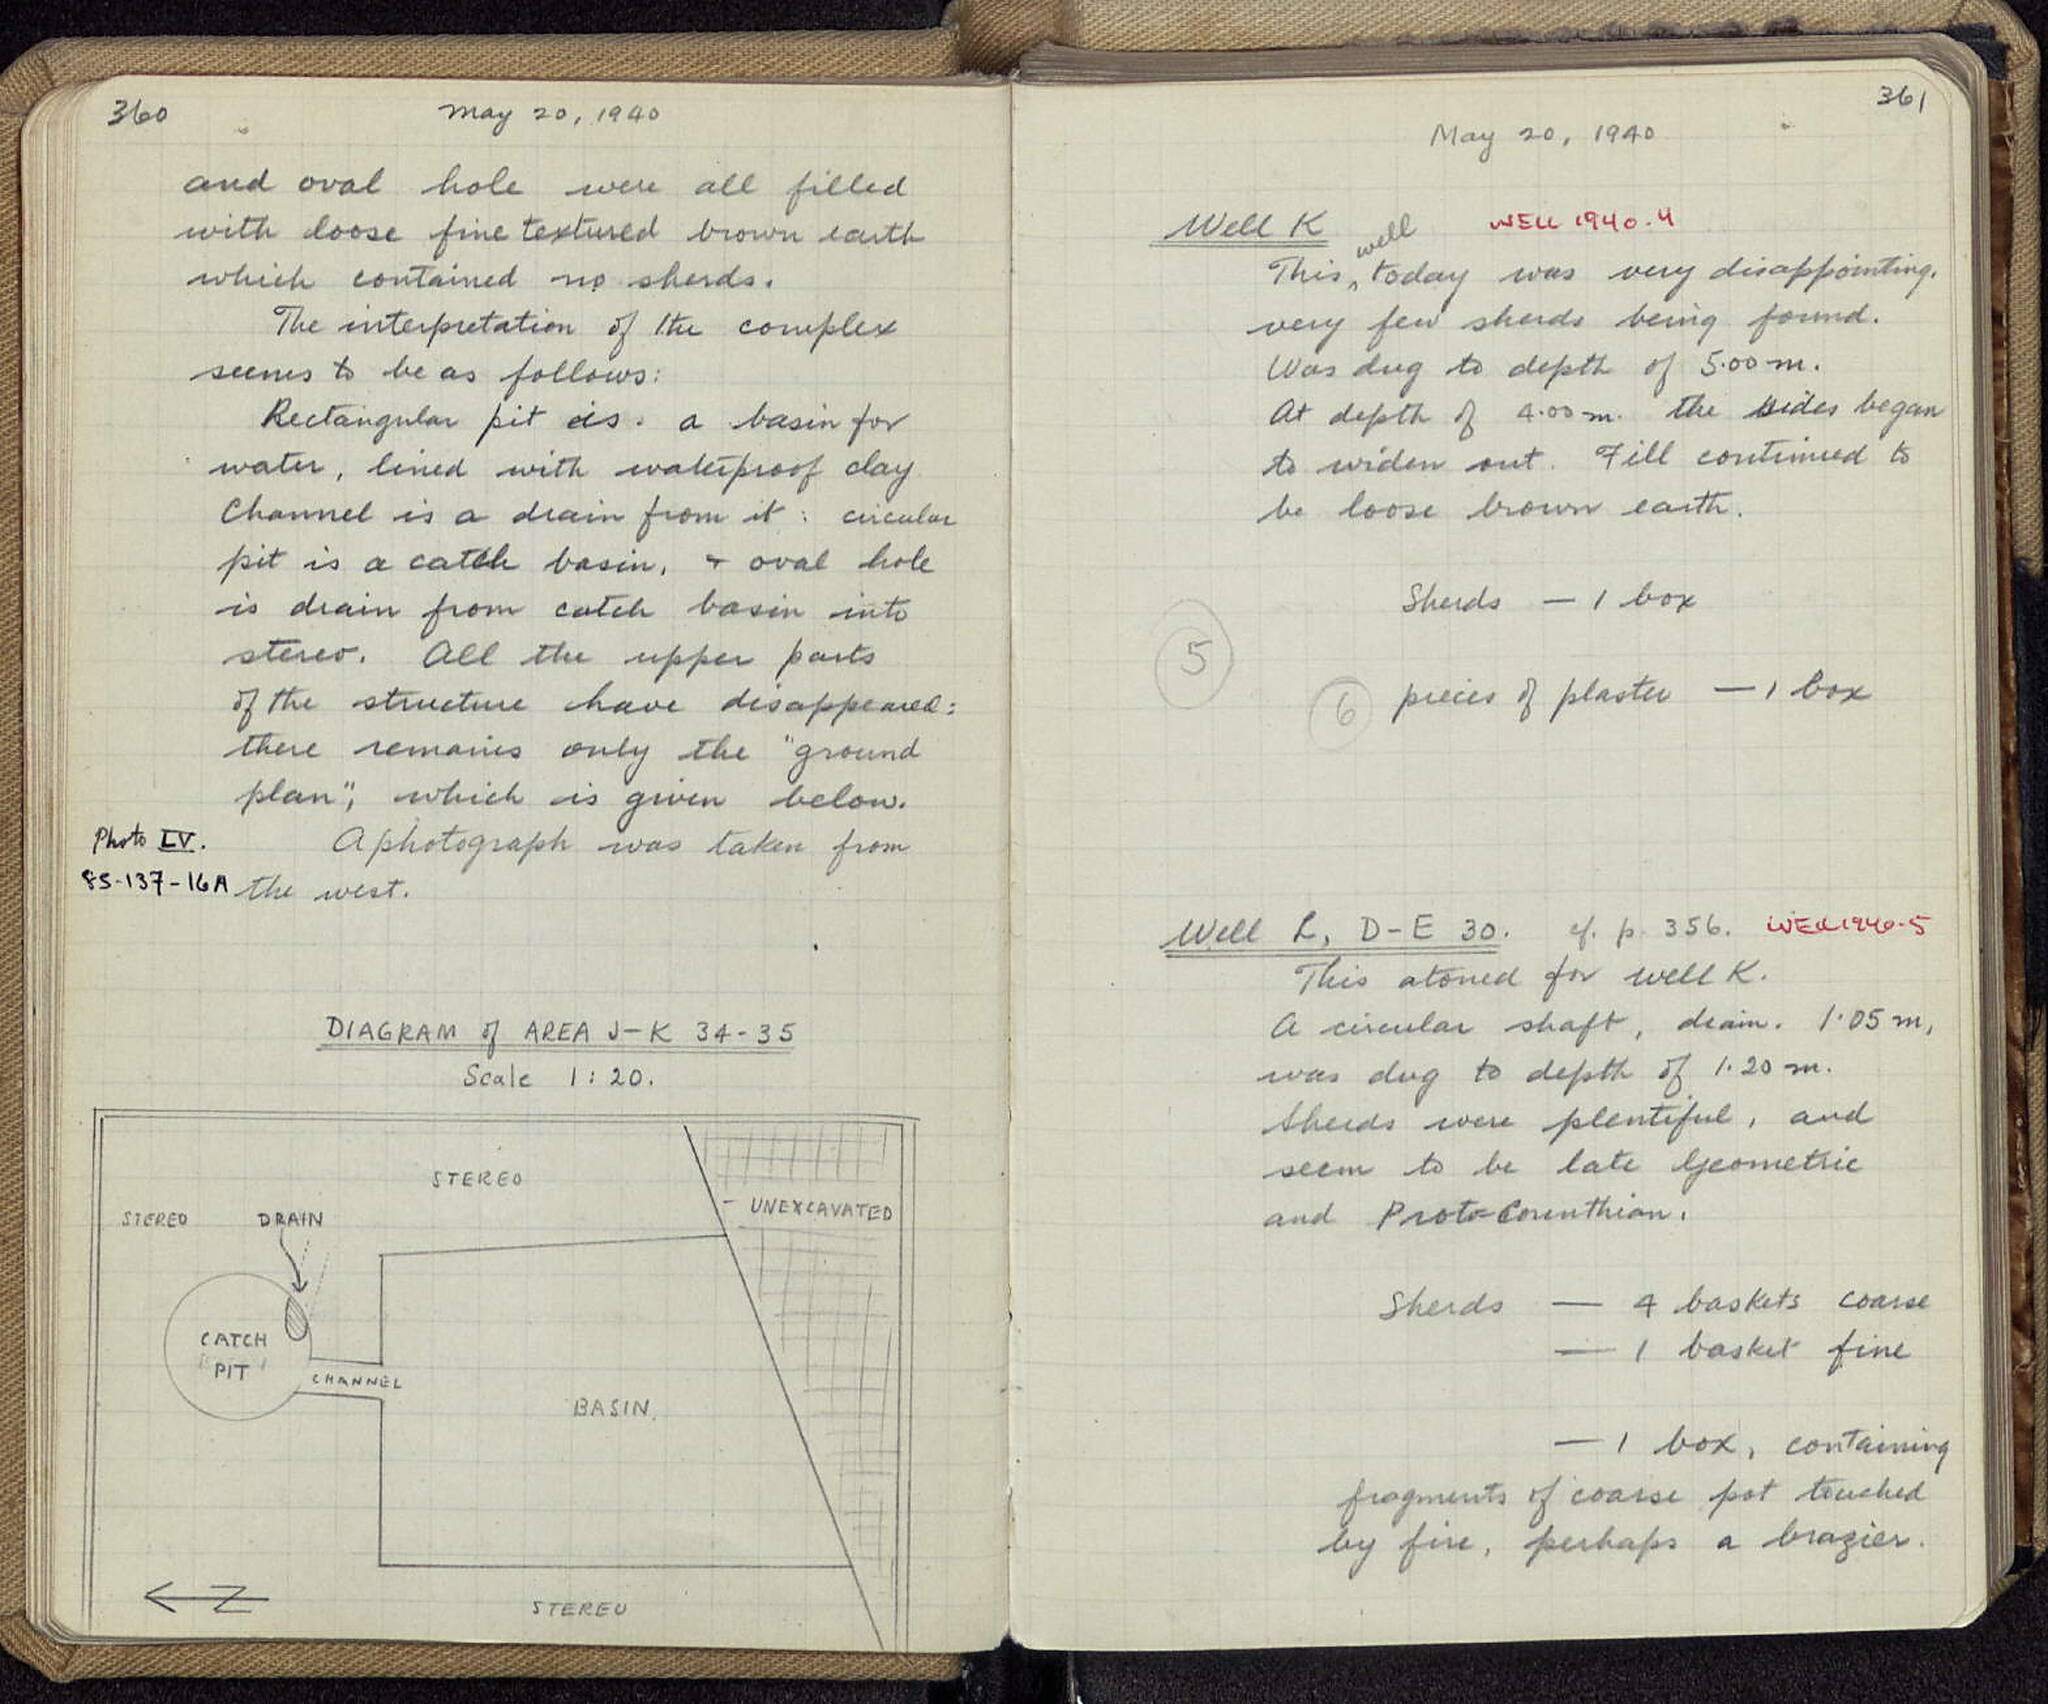 360
May 20, 1940
and oval hole were all filled
with loose fine textured brown earth
which contained no sherds.
The interpretation of the complex
seems to be as follows:
Rectangular pit is a basin for
water, lined with waterproof clay
Channel is a drain from it: circular
pit is a catch basin, + oval hole
is drain from catch basin into
stereo. All the upper parts
of the structure have disappeared:
there remains only the "ground
plan", which is given below.
Photo LV.
A photograph was taken from
85-137-16A
the west.
DIAGRAM of AREA J-K 34-35
Scale 1:20.
STEREO
UNEXCAVATED
STEREO
DRAIN
CATCH
PIT
CHANNEL
BASIN.
STEREO
Z
361
May 20, 1940
Well K
WELL 1940-4
This well today was very disappointing.
very few sherds being found.
Was dug to depth of 5.00 m.
At depth of 4.00 m. the sides began
to widen out. Fill continued to
be loose brown earth.
Sherds — 1 box
5
6 pieces of plaster — 1 box
Well L, D-E 30. cf. p. 356. WELL 1940-5
This atoned for well K.
A circular shaft, diam. 1.05 m,
was dug to depth of 1.20 m.
Sherds were plentiful, and
seem to be late Geometric
and Proto-Corinthian.
Sherds — 4 baskets coarse
— 1 basket fine
— 1 box, containing
fragments of coarse pot touched
by fire, perhaps a brazier.